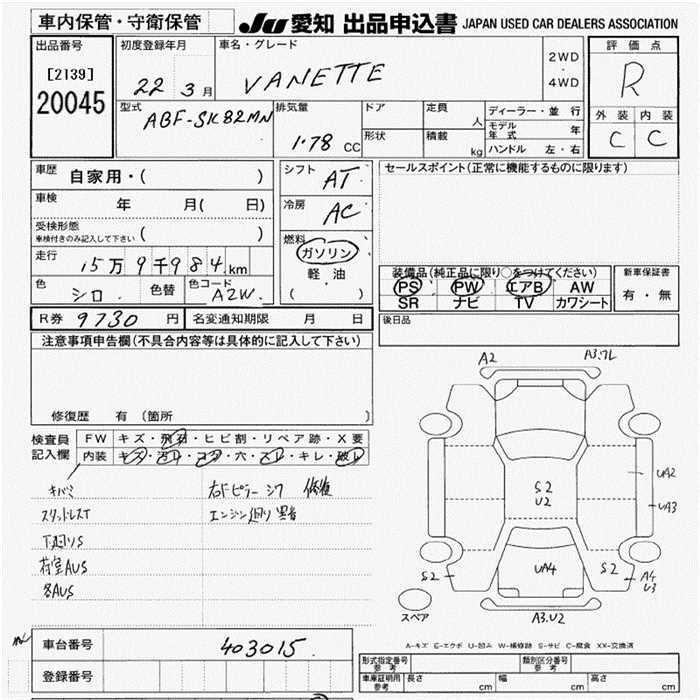 車内保管・守衛保管
JU 愛知 出品申込書 JAPAN USED CAR DEALERS ASSOCIATION
出品番号
[2139]
20045
初度登録年月
22 3 月
車名・グレード
VANETTE
2WD
・
4WD
評価点
R
外装 内装
C C
型式
ABF-SK82MN
排気量
1.78 CC
ドア
形状
定員
人
積載
kg
ディーラー・並行
モデル年式 年
ハンドル 左・右
車歴 自家用・( )
車検 年 月( 日)
受検形態
車検付きのみ記入して下さい ( )
走行 15万9千984km
色 シロ. 色替 色コード A2W.
シフト AT
冷房 AC
燃料
ガソリン
軽油
( )
セールスポイント(正常に機能するものに限ります)
装備品(純正品に限り○をつけてください)
PS PW エアB AW
SR ナビ TV カワシート
新車保証書
有・無
R券 9730 円 名変通知期限 月 日
後日品
注意事項申告欄(不具合内容等は具体的に記入して下さい)
修復歴 有 (箇所 )
検査員
記入欄
FW キズ・飛石・ヒビ割・リペア跡・X要
内装 キズ・汚レ・コゲ・穴・スレ・キレ・破レ
キバミ
スタッドレスT
下廻りS
荷室AUS
各AUS
右Fピラー シワ 修復
エンジン廻り異音
A2 A3.7L
S2
U2
UA2
UA3
UA4
S2 S2
A4
U3
A3.U2
スペア
A-キズ E-エクボ U-凹み W-補修跡 S-サビ C-腐食 XX-交換済
車台番号 403015.
登録番号
形式指定番号
参考
類別区分番号
参考
車庫証明用
参考
長さ cm 幅 cm 高さ cm